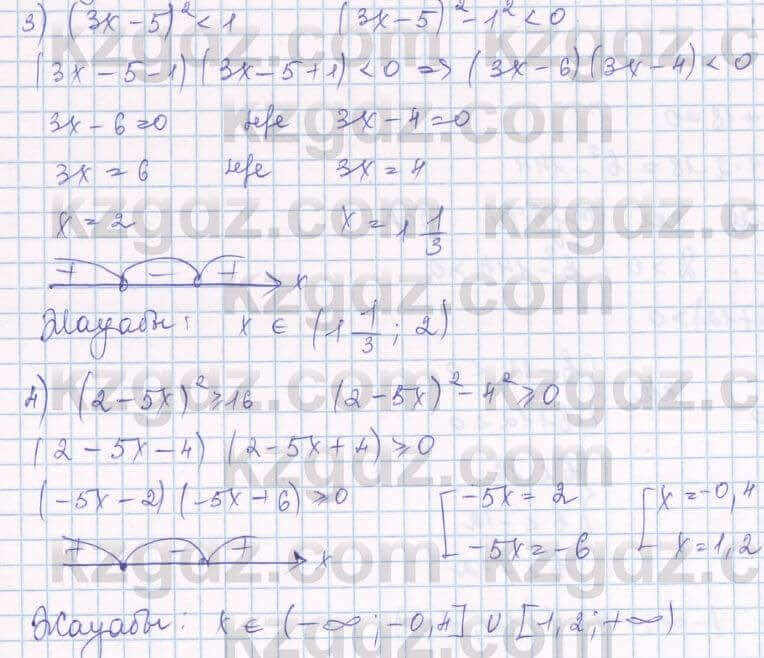 3) (3x-5)² < 1 (3x-5)² - 1² < 0
(3x-5-1)(3x-5+1) < 0 => (3x-6)(3x-4) < 0
3x-6=0 не/е 3x-4=0
3x = 6 не/е 3x = 4
x = 2 x = 1 1/3
+ - + x
Жауабы: x ∈ (1 1/3; 2)
4) (2-5x)² ≥ 16 (2-5x)² - 4² ≥ 0
(2-5x-4)(2-5x+4) ≥ 0
(-5x-2)(-5x+6) ≥ 0 [-5x = 2 [x = -0,4
-5x = -6 x = 1,2
+ - + x
Жауабы: x ∈ (-∞; -0,4] ∪ [1,2; +∞)
kzgdz.com